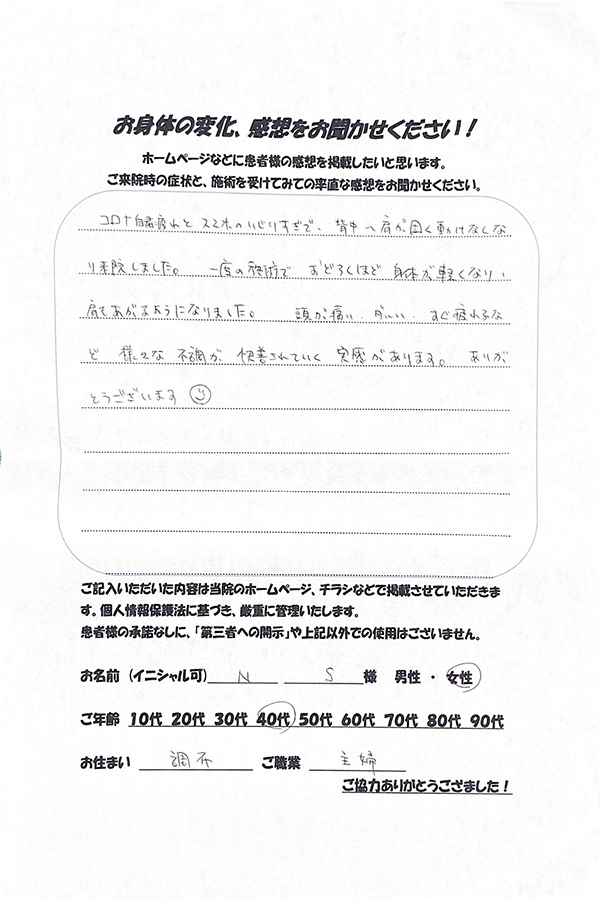 お身体の変化、感想をお聞かせください！
ホームページなどに患者様の感想を掲載したいと思います。
ご来院時の症状と、施術を受けてみての率直な感想をお聞かせください。
コロナ自粛疲れとスマホのいじりすぎで、背中や肩が固く動けなくな
り来院しました。 一度の施術で おどろくほど 身体が軽くなり、
肩もあがるようになりました。 頭が痛い、ダルい、すぐ疲れるな
ど 様々な 不調が 改善されていく 実感があります。 ありが
とうございます
ご記入いただいた内容は当院のホームページ、チラシなどで掲載させていただきま
す。個人情報保護法に基づき、厳重に管理いたします。
患者様の承諾なしに、「第三者への開示」や上記以外での使用はございません。
お名前（イニシャル可） N S 様 男性 ・ 女性
ご年齢 10代 20代 30代 40代 50代 60代 70代 80代 90代
お住まい 調布 ご職業 主婦
ご協力ありがとうござました！